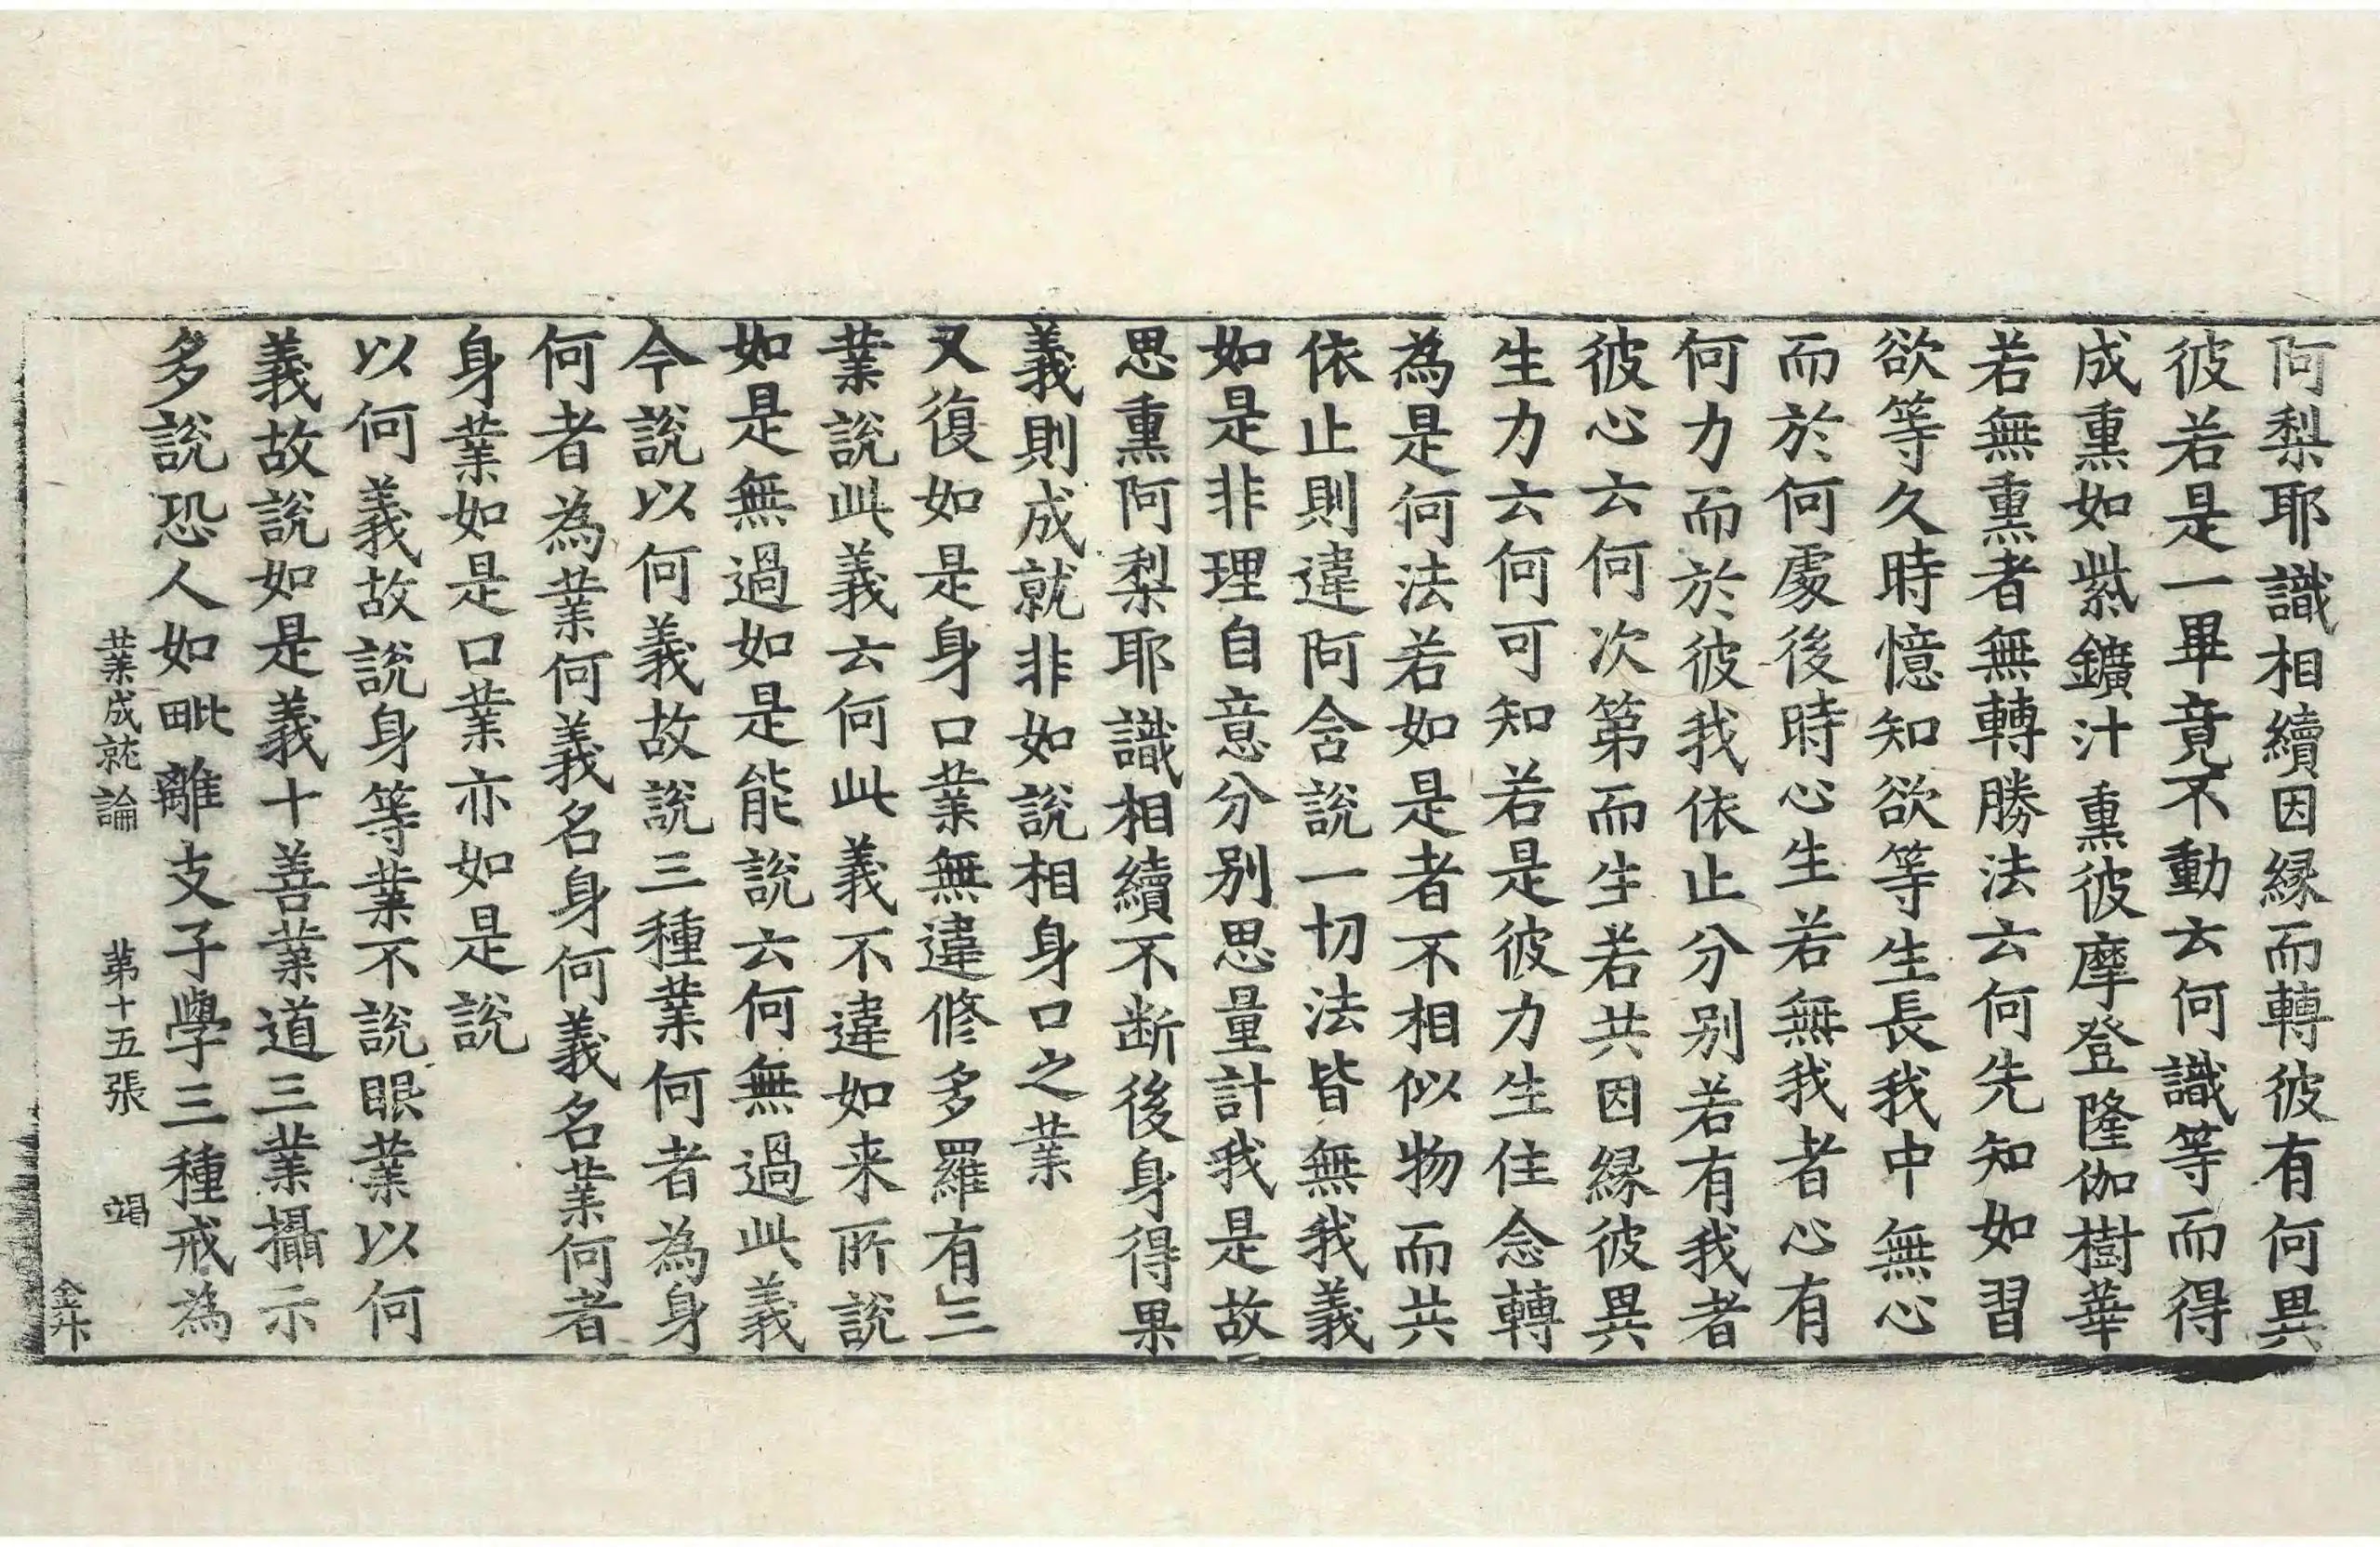 阿梨耶識相續因縁而轉彼有何異
彼若是一畢竟不動云何識等而得
成熏如紫鑛汁熏彼摩登隆伽樹華
若無熏者無轉勝法云何先知如習
欲等久時憶知欲等生長我中無心
而於何處後時心生若無我者心有
何力而於彼我依止分別若有我者
彼心云何次第而生若共因縁彼異
生力云何可知若是彼力生住念轉
為是何法若如是者不相似物而共
依止則違阿含說一切法皆無我義
如是非理自意分別思量計我是故
思熏阿梨耶識相續不断後身得果
義則成就非如說相身口之業
又復如是身口業無違修多羅有三
業說此義云何此義不違如来所說
如是無過如是能說云何無過此義
今說以何義故說三種業何者為身
何者為業何義名身何義名業何者
身業如是口業亦如是說
以何義故說身等業不說眼業以何
義故說如是義十善業道三業攝示
多說恐人如毗離支子學三種戒為
業成就論 第十五張 竭
金升